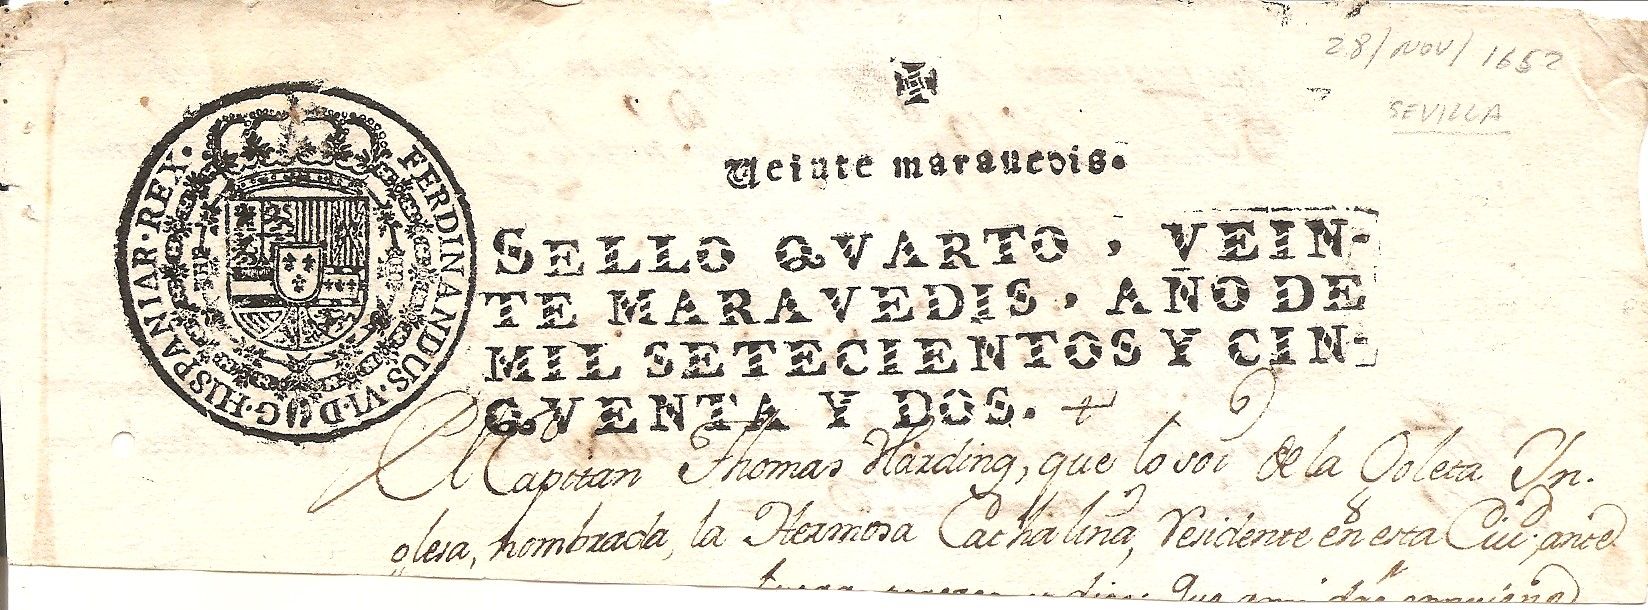 28/NOV/1652
SEVILLA
Veinte maravedis.
FERDINANDUS·VI·D·G·HISPANIAR·REX·
SELLO QVARTO, VEIN-
TE MARAVEDIS, AÑO DE
MIL SETECIENTOS Y CIN-
QVENTA Y DOS.
El Capitan Thomas Harding, que lo soi de la Goleta In.
glesa, nombrada, la Hermosa Cathalina, residente en esta Ciud. ante